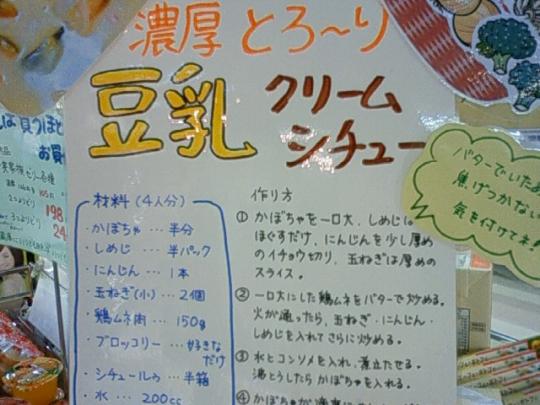 濃厚 とろ〜り
豆乳 クリーム
シチュー
バターでいため
焦げつかない
気を付けてネ!
材料(4人分)
・かぼちゃ … 半分
・しめじ … 半パック
・にんじん … 1本
・玉ねぎ(小) … 2個
・鶏ムネ肉 … 150g
・ブロッコリー … 好きな
だけ
・シチュールゥ … 半箱
・水 … 200cc
作り方
① かぼちゃを一口大、しめじは
ほぐすだけ、にんじんを少し厚め
のイチョウ切り、玉ねぎは厚めの
スライス。
② 一口大にした鶏ムネをバターで炒める。
火が通ったら、玉ねぎ・にんじん・
しめじを入れてさらに炒める。
③ 水とコンソメを入れ、煮立たせる。
沸とうしたらかぼちゃを入れる。
④ かぼちゃが
198